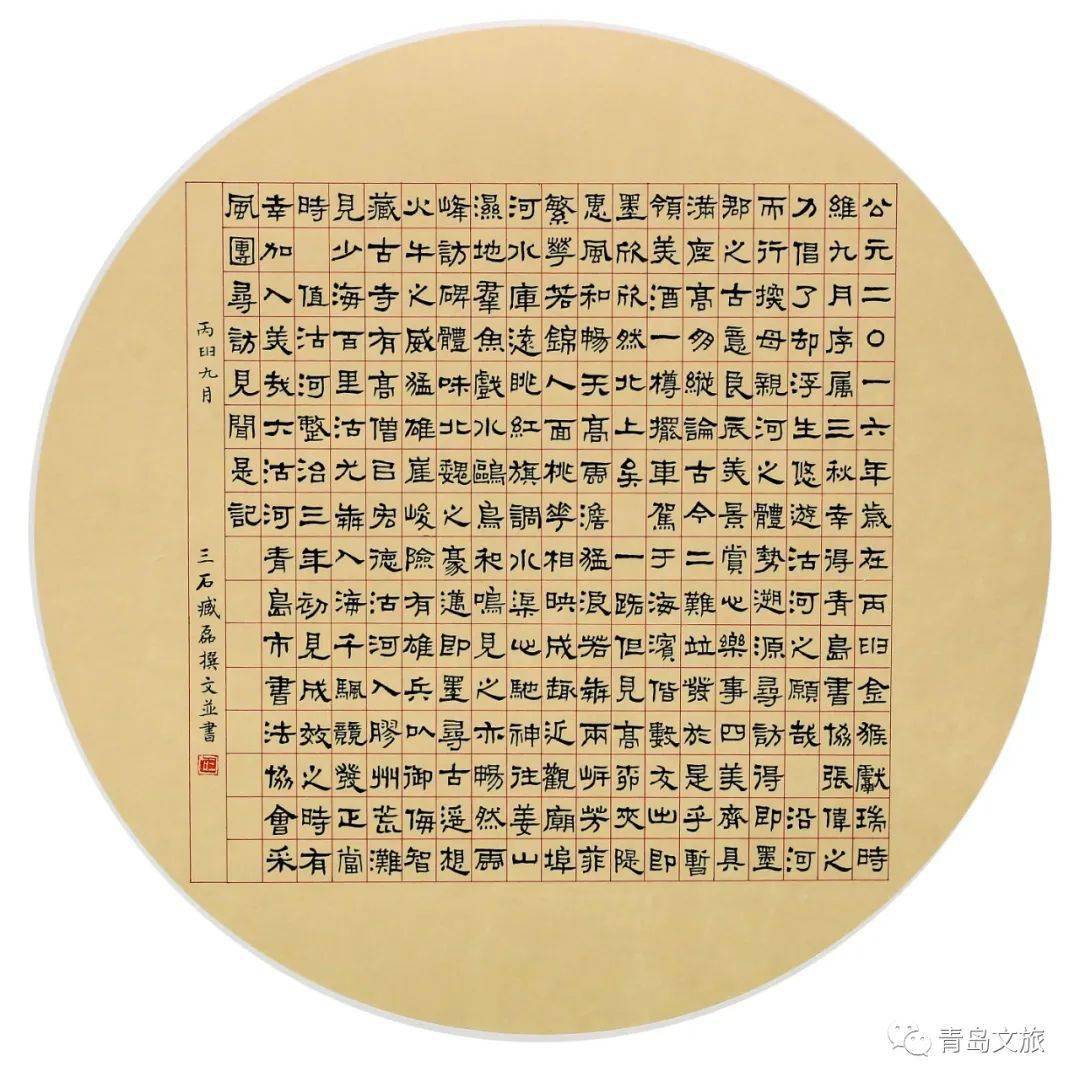 公元二〇一六年歲在丙申金猴獻瑞時
維九月序属三秋幸得青島書協張偉之
力倡了却浮生悠遊沽河之願哉 沿河
而行揆母親河之體勢溯源尋訪得即墨
郡之古意良辰美景賞心樂事四美齊具
滿座高朋縱論古今二難竝發於是乎暫
領美酒一樽擺車駕于海濱偕數友出即
墨欣欣然北上矣 一路但見高柳夾隄
惠風和暢天高雨澹猛浪若犇兩岍芳菲
繁華若錦人面桃華相映成趣近觀廟埠
河水庫遠眺紅旗調水渠心馳神往姜山
濕地羣魚戲水鷗鳥和鳴見之亦暢然兩
峰訪碑體味北魏之豪邁即墨尋古遥想
火牛之威猛雄崖峻險有雄兵以御侮智
藏古寺有高僧曰宏德沽河入膠州荒灘
見少海百里沽尤犇入海千颿競發正當
時 值沽河整治三年初見成效之時有
幸加入美哉大沽河青島市書法協會采
風團尋訪見聞是記
丙申九月 三石臧磊撰文並書
青岛文旅